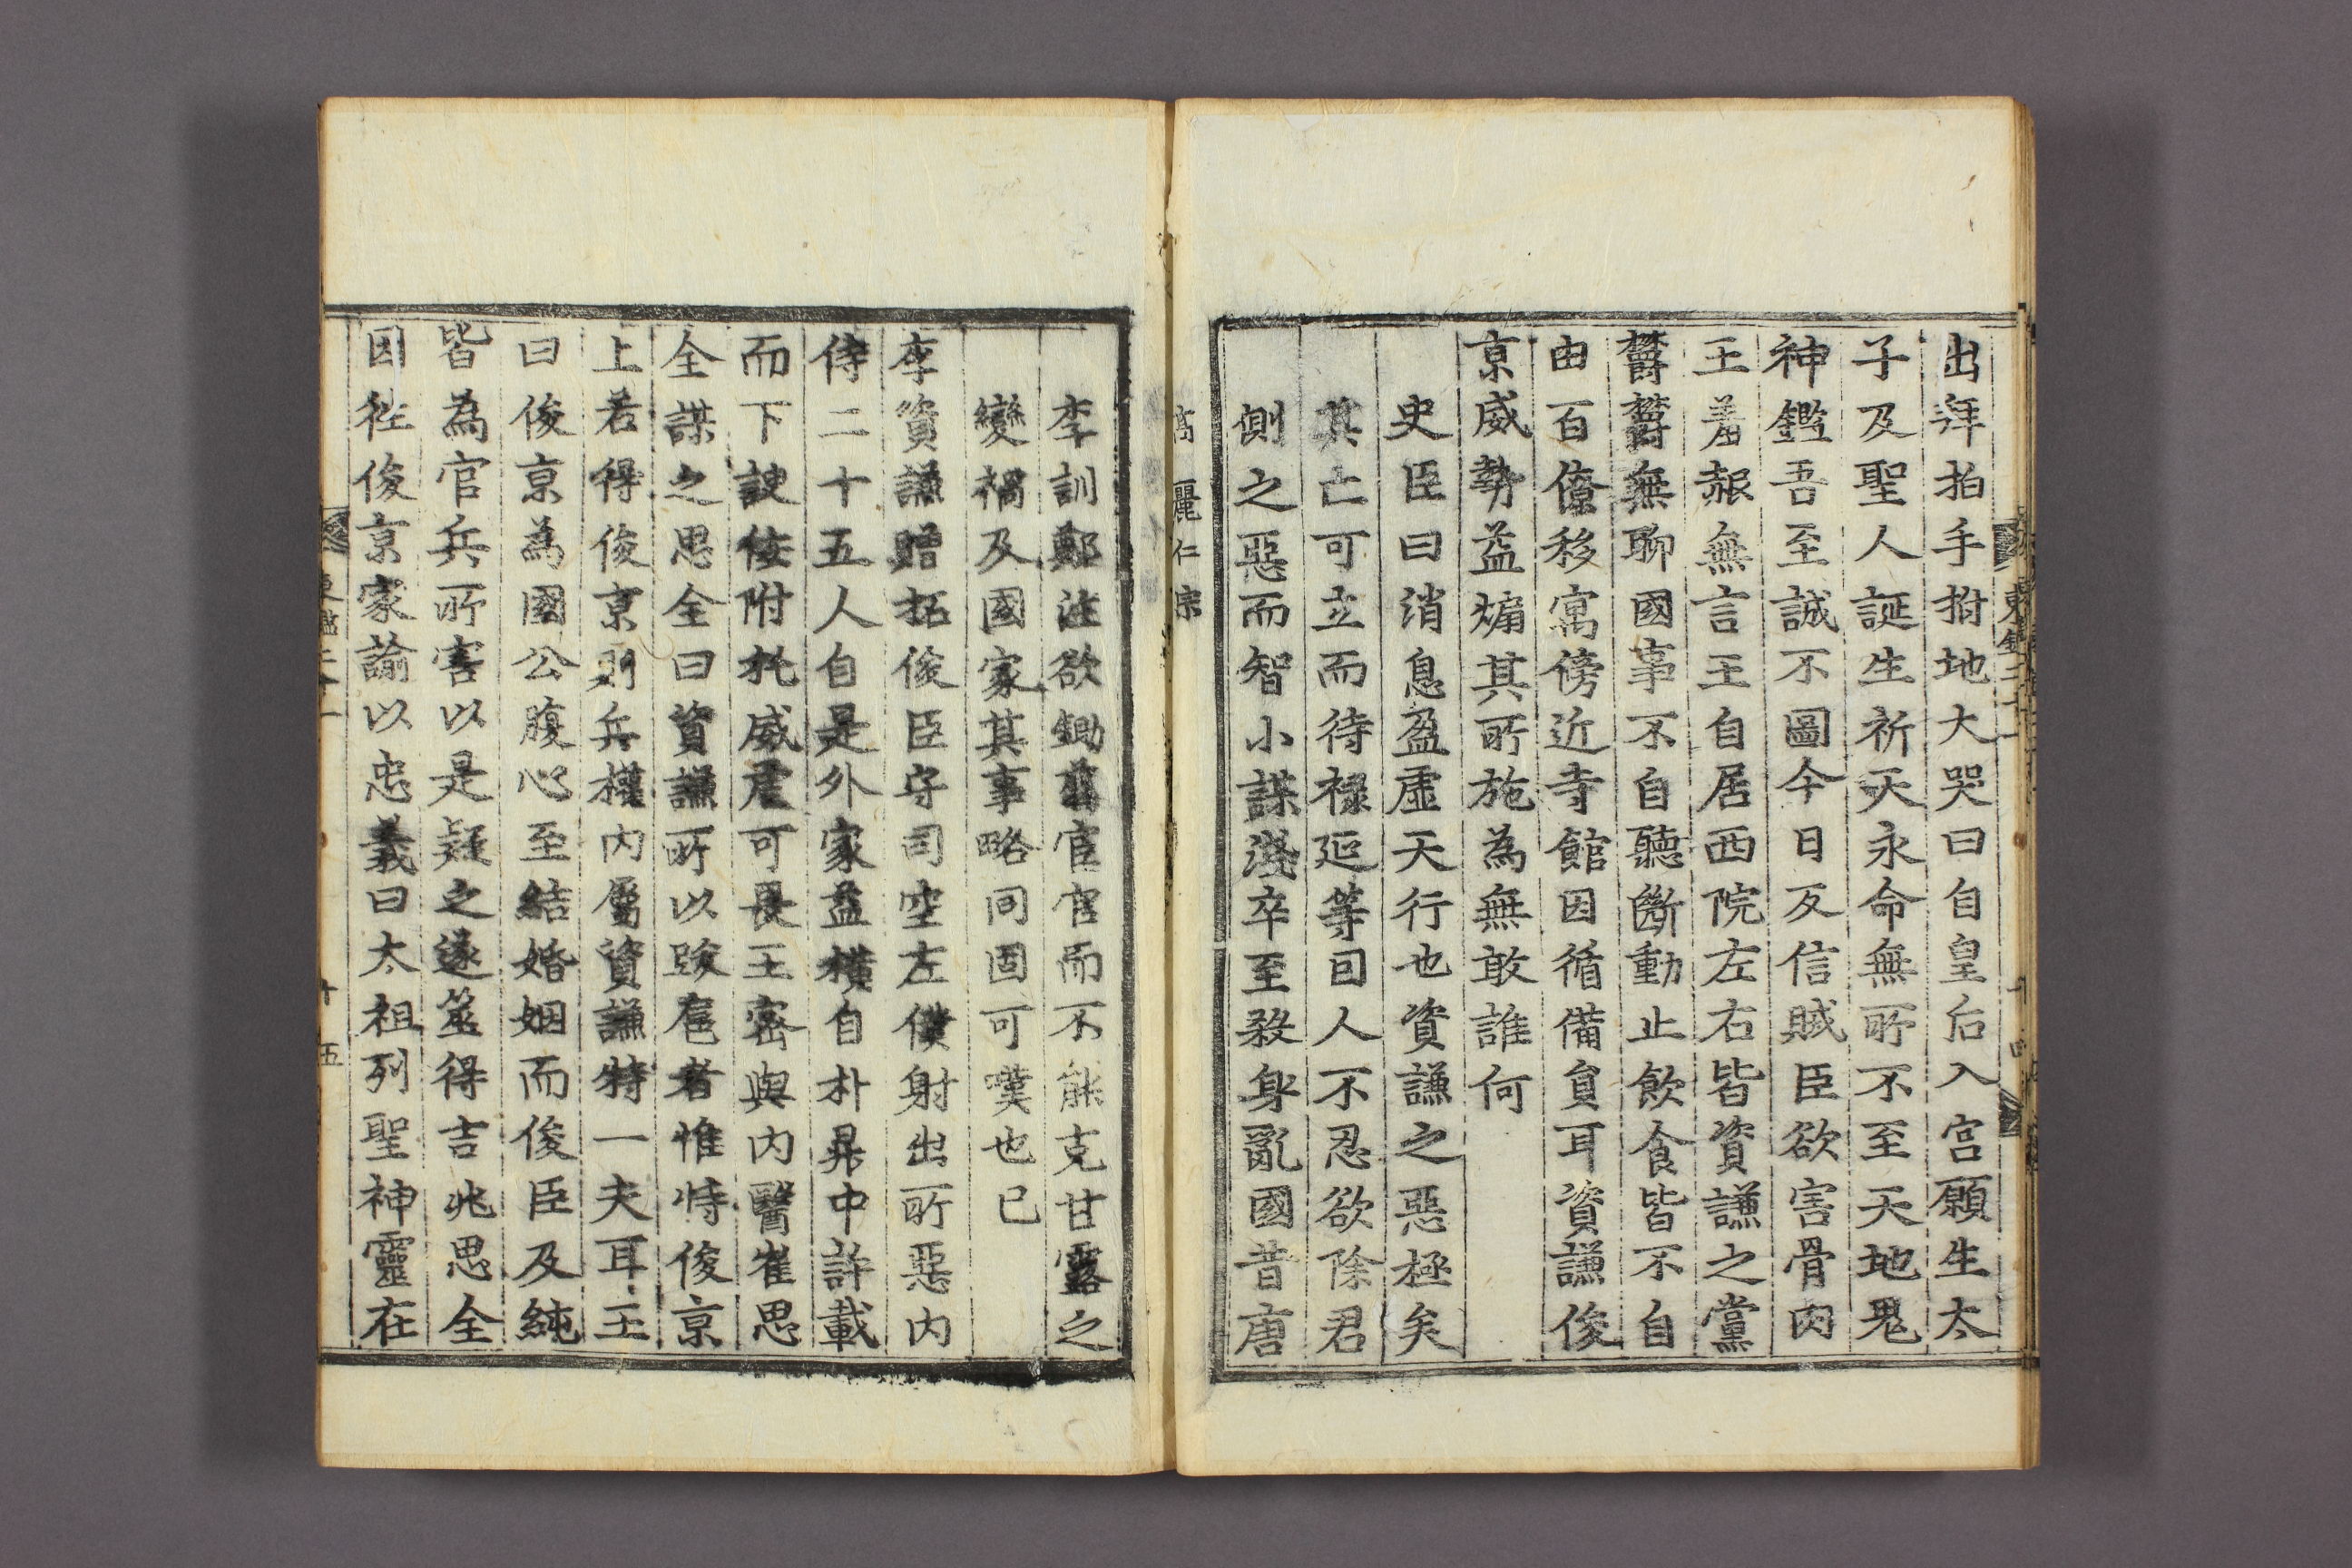 出拜拍手拊地大哭曰自皇后入宮願生太
子及聖人誕生祈天永命無所不至天地鬼
神鑑吾至誠不圖今日反信賊臣欲害骨肉
王羞赧無言王自居西院左右皆資謙之黨
欝欝無聊國事不自聽斷動止飮食皆不自
由百僚移寓傍近寺館因循備員耳資謙俊
京威勢益煽其所施為無敢誰何
史臣曰消息盈虛天行也資謙之惡極矣
其亡可立而待祿延等目人不忍欲除君
側之惡而智小謀淺卒至殺身亂國昔唐
高麗仁宗
李訓鄭注欲鋤翦宦官而不能克甘露之
變禍及國家其事略同固可嘆也已
李資謙贈拓俊臣守司空左僕射出所惡內
侍二十五人自是外家益橫自朴昇中許載
而下諛佞附托威虐可畏王密與內醫崔思
全謀之思全曰資謙所以跋扈者惟恃俊京
上若得俊京則兵權內屬資謙特一夫耳王
曰俊京為國公腹心至結婚姻而俊臣及純
皆為官兵所害以是疑之遂筮得吉兆思全
因往俊京家諭以忠義曰太祖列聖神靈在
東鑑二十一
十五